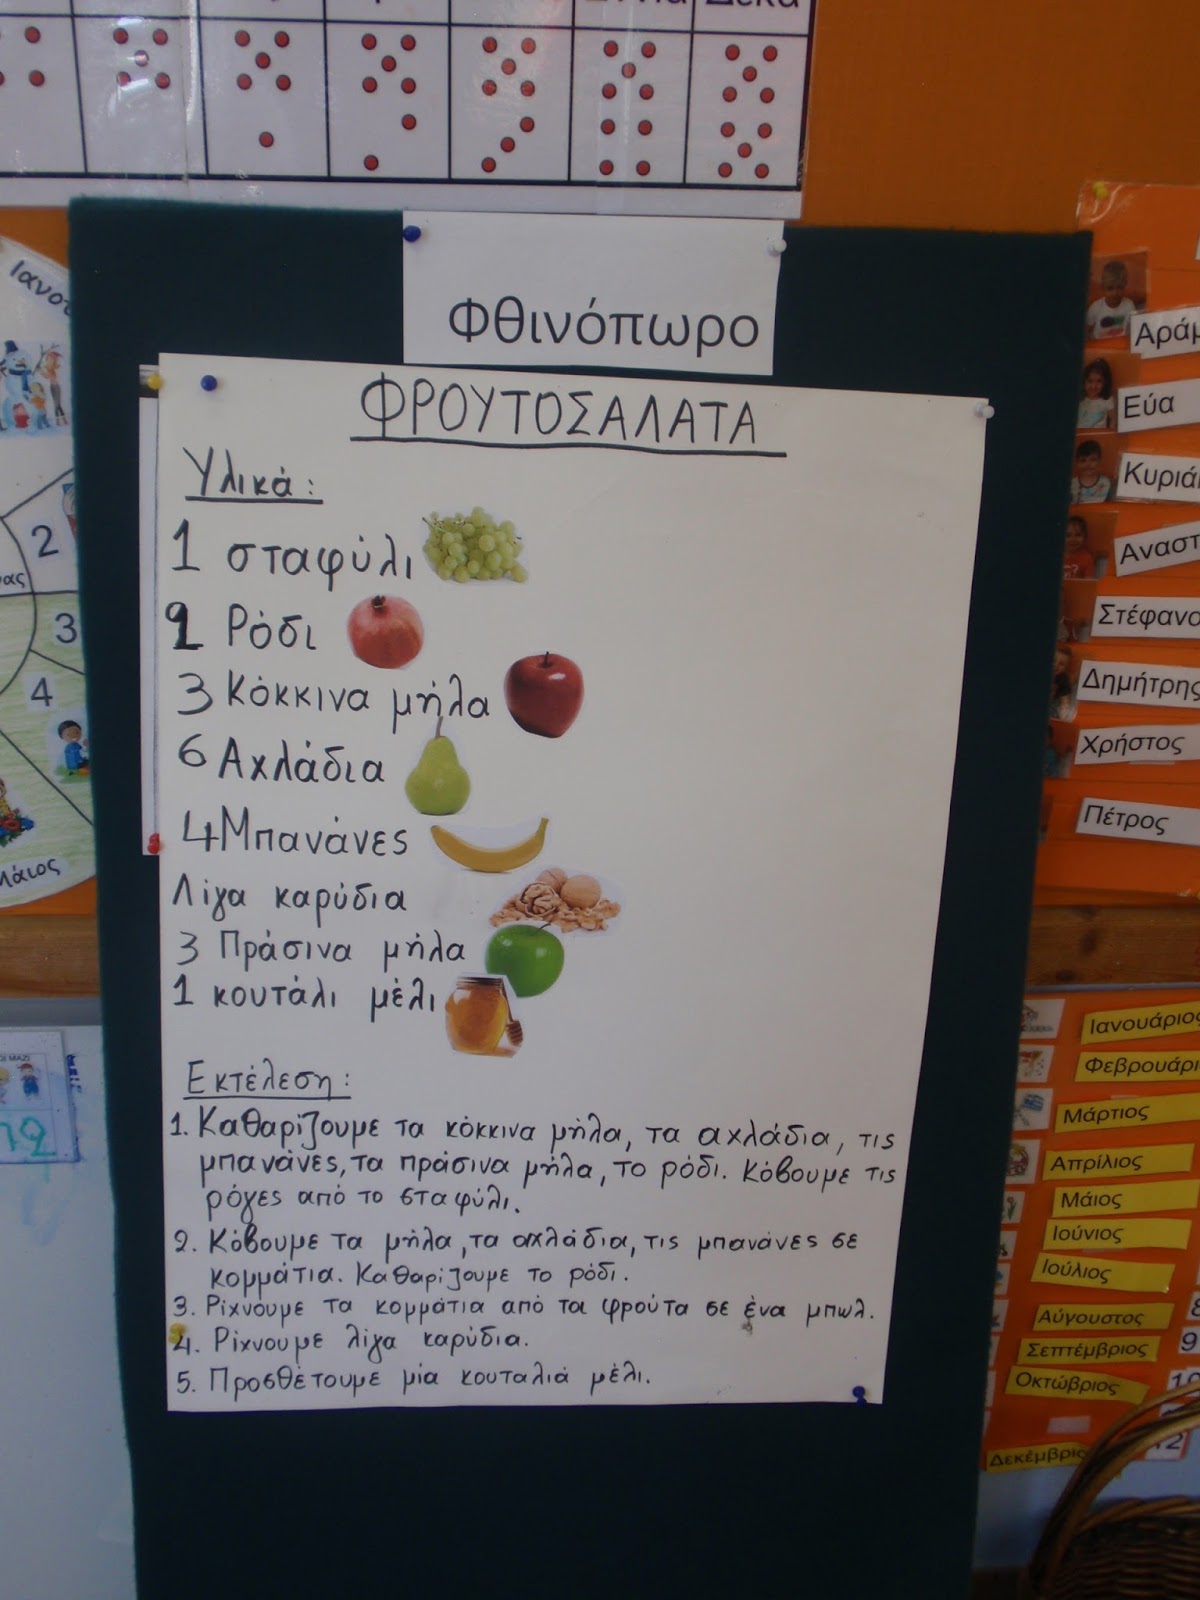 Δέκα
Ιανου
2
3
4
Μάιος
Φθινόπωρο
ΦΡΟΥΤΟΣΑΛΑΤΑ
Υλικά:
1 σταφύλι
Ρόδι
3 Κόκκινα μήλα
6 Αχλάδια
4 Μπανάνες
Λίγα καρύδια
3 Πράσινα μήλα
1 κουτάλι μέλι
Εκτέλεση:
1. Καθαρίζουμε τα κόκκινα μήλα, τα αχλάδια, τις
μπανάνες, τα πράσινα μήλα, το ρόδι. Κόβουμε τις
ρόγες από το σταφύλι.
2. Κόβουμε τα μήλα, τα αχλάδια, τις μπανάνες σε
κομμάτια. Καθαρίζουμε το ρόδι.
3. Ρίχνουμε τα κομμάτια από τα φρούτα σε ένα μπωλ.
4. Ρίχνουμε λίγα καρύδια.
5. Προσθέτουμε μία κουταλιά μέλι.
Αράμ
Εύα
Κυριά
Αναστ
Στέφανο
Δημήτρης
Χρήστος
Πέτρος
Ιανουάριος
Φεβρουάρι
Μάρτιος
Απρίλιος
Μάιος
Ιούνιος
Ιούλιος
Αύγουστος
Σεπτέμβριος
9
Οκτώβριος
Δεκέμβριο
12